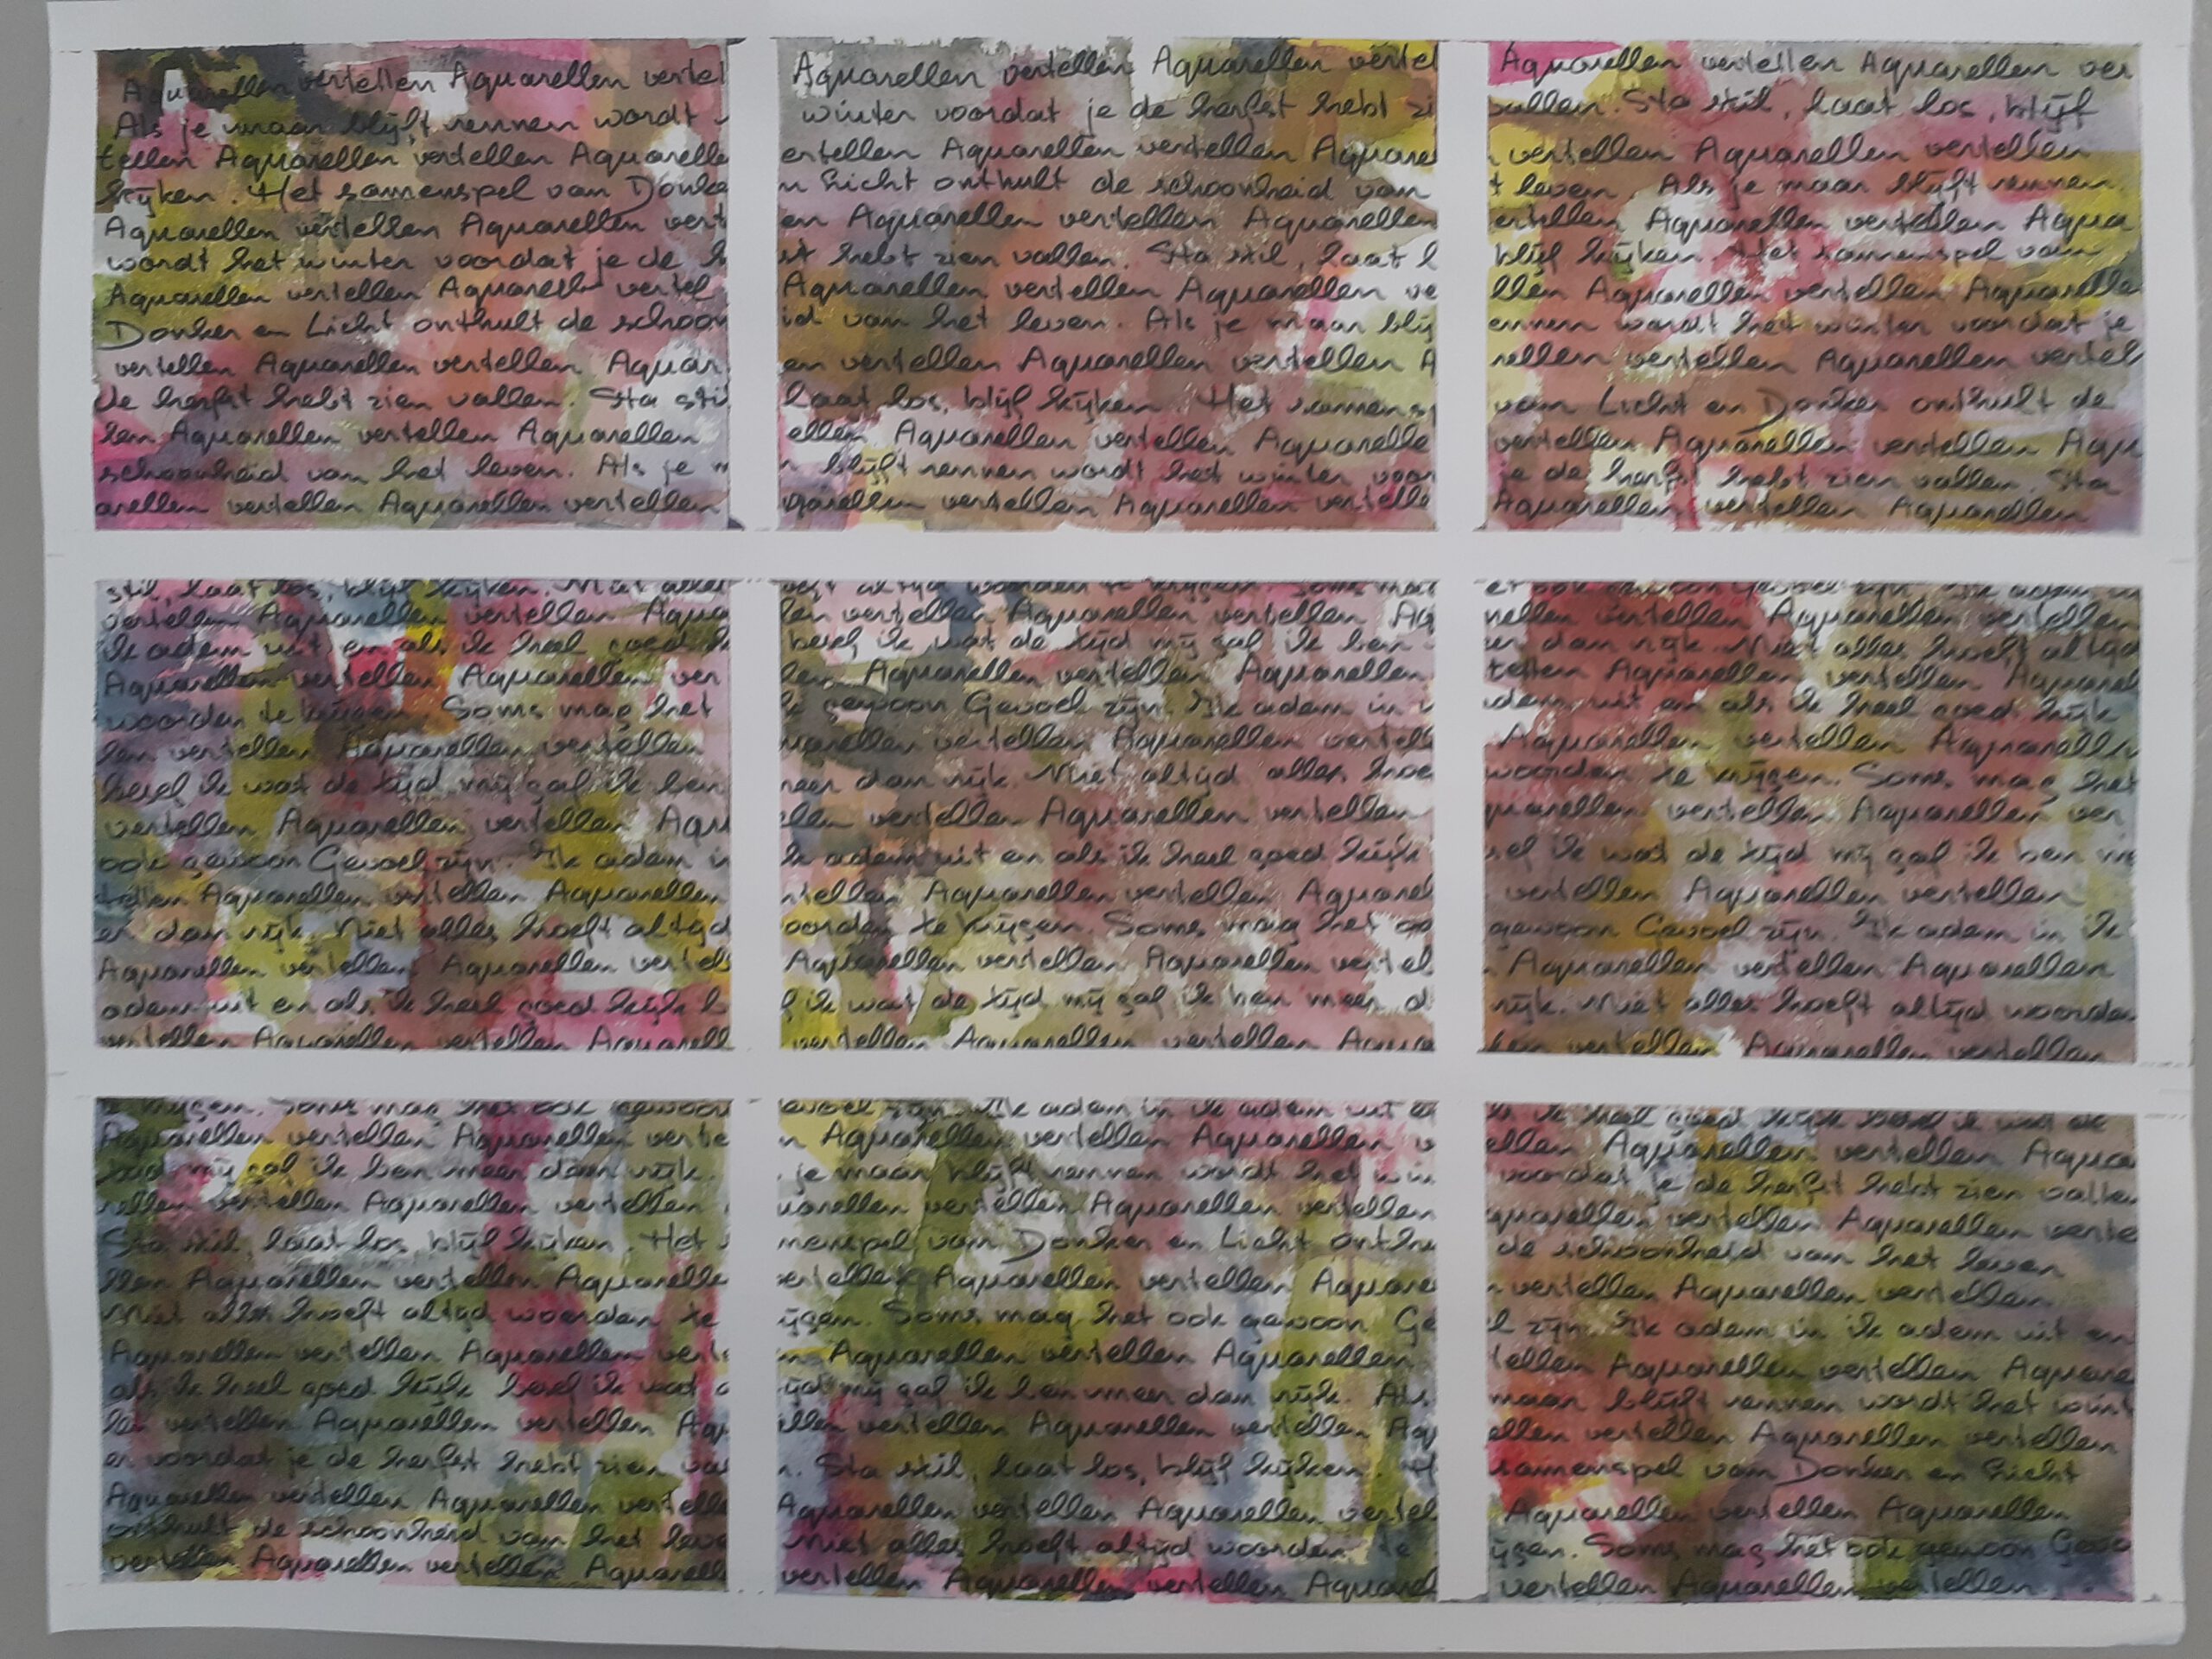 Aquarellen vertellen Aquarellen vertel
Als je maar blijft rennen wordt
tellen Aquarellen vertellen Aquarelle
kijken. Het samenspel van Donke
Aquarellen vertellen Aquarellen vert
wordt het winter voordat je de h
Aquarellen vertellen Aquarellen vertel
Donker en Licht onthult de schoon
vertellen Aquarellen vertellen Aquar
de herfst hebt zien vallen. Sta stil
len Aquarellen vertellen Aquarellen
schoonheid van het leven. Als je m
arellen vertellen Aquarellen vertellen
Aquarellen vertellen Aquarellen vertel
winter voordat je de herfst hebt zi
ertellen Aquarellen vertellen Aquarel
n Licht onthult de schoonheid van
en Aquarellen vertellen Aquarellen
st hebt zien vallen. Sta stil, laat l
Aquarellen vertellen Aquarellen ve
id van het leven. Als je maar blij
en vertellen Aquarellen vertellen A
laat los, blijf kijken. Het samensp
ellen Aquarellen vertellen Aquarelle
blijft rennen wordt het winter voor
quarellen vertellen Aquarellen vertelle
Aquarellen vertellen Aquarellen ver
vallen. Sta stil, laat los, blijf
vertellen Aquarellen vertellen
t leven. Als je maar blijft rennen
ertellen Aquarellen vertellen Aqua
blijf kijken. Het samenspel van
llen Aquarellen vertellen Aquarelle
ennen wordt het winter voordat je
rellen vertellen Aquarellen vertel
van Licht en Donker onthult de
vertellen Aquarellen vertellen Aqu
je de herfst hebt zien vallen. Sta
Aquarellen vertellen Aquarellen
stil, laat los, blijf kijken. Niet alles
vertellen Aquarellen vertellen Aqua
ik adem uit en als ik heel goed k
Aquarellen vertellen Aquarellen ver
woorden te krijgen. Soms mag het
len vertellen Aquarellen vertellen
besef ik wat de tijd mij gaf ik ben
vertellen Aquarellen vertellen Aqu
ook gewoon Gevoel zijn. Ik adem in
tellen Aquarellen vertellen Aquarellen
er dan rijk. Niet alles hoeft altijd
Aquarellen vertellen Aquarellen vertell
adem uit en als ik heel goed kijk b
vertellen Aquarellen vertellen Aquarell
oeft altijd woorden te krijgen. Soms mag
len vertellen Aquarellen vertellen Aq
besef ik wat de tijd mij gaf ik ben
len Aquarellen vertellen Aquarellen
k gewoon Gevoel zijn. Ik adem in
uarellen vertellen Aquarellen vertell
meer dan rijk. Niet altijd alles hoe
ellen vertellen Aquarellen vertellen
ik adem uit en als ik heel goed kijk
rtellen Aquarellen vertellen Aquarel
oorden te krijgen. Soms mag het oo
Aquarellen vertellen Aquarellen vertel
f ik wat de tijd mij gaf ik ben meer d
vertellen Aquarellen vertellen Aqua
et ook gewoon Gevoel zijn. Ik adem in
rellen vertellen Aquarellen vertellen
er dan rijk. Niet alles hoeft altijd
tellen Aquarellen vertellen Aquarel
adem uit en als ik heel goed kijk
Aquarellen vertellen Aquarelle
woorden te krijgen. Soms mag het
quarellen vertellen Aquarellen ver
sef ik wat de tijd mij gaf ik ben me
vertellen Aquarellen vertellen
gewoon Gevoel zijn. Ik adem in ik
Aquarellen vertellen Aquarellen
rijk. Niet alles hoeft altijd woorde
len vertellen Aquarellen vertellen
te krijgen. Soms mag het ook gewoon
Aquarellen vertellen Aquarellen verte
tijd mij gaf ik ben meer dan rijk.
rellen vertellen Aquarellen vertellen
Sta stil, laat los, blijf kijken. Het
llen Aquarellen vertellen Aquarelle
Niet alles hoeft altijd woorden te
Aquarellen vertellen Aquarellen vert
als ik heel goed kijk besef ik wat d
len vertellen Aquarellen vertellen Aq
er voordat je de herfst hebt zien va
Aquarellen vertellen Aquarellen vertelle
onthult de schoonheid van het leve
vertellen Aquarellen vertellen Aquarell
Gevoel zijn. Ik adem in ik adem uit en
n Aquarellen vertellen Aquarellen v
je maar blijft rennen wordt het win
uarellen vertellen Aquarellen vertellen
menspel van Donker en Licht onthu
vertellen Aquarellen vertellen Aquare
ijgen. Soms mag het ook gewoon Ge
n Aquarellen vertellen Aquarellen
ijd mij gaf ik ben meer dan rijk. Als
ellen vertellen Aquarellen vertellen Aq
n. Sta stil, laat los, blijf kijken. H
Aquarellen vertellen Aquarellen vertel
Niet alles hoeft altijd woorden te
vertellen Aquarellen vertellen Aquarel
ls ik heel goed kijk besef ik wat de
ellen Aquarellen vertellen Aqua
voordat je de herfst hebt zien valle
quarellen vertellen Aquarellen verte
de schoonheid van het leven
vertellen Aquarellen vertellen
l zijn. Ik adem in ik adem uit en
tellen Aquarellen vertellen Aquare
maar blijft rennen wordt het wint
ellen vertellen Aquarellen vertellen
samenspel van Donker en Licht
Aquarellen vertellen Aquarellen
ijgen. Soms mag het ook gewoon Gevo
vertellen Aquarellen vertellen.